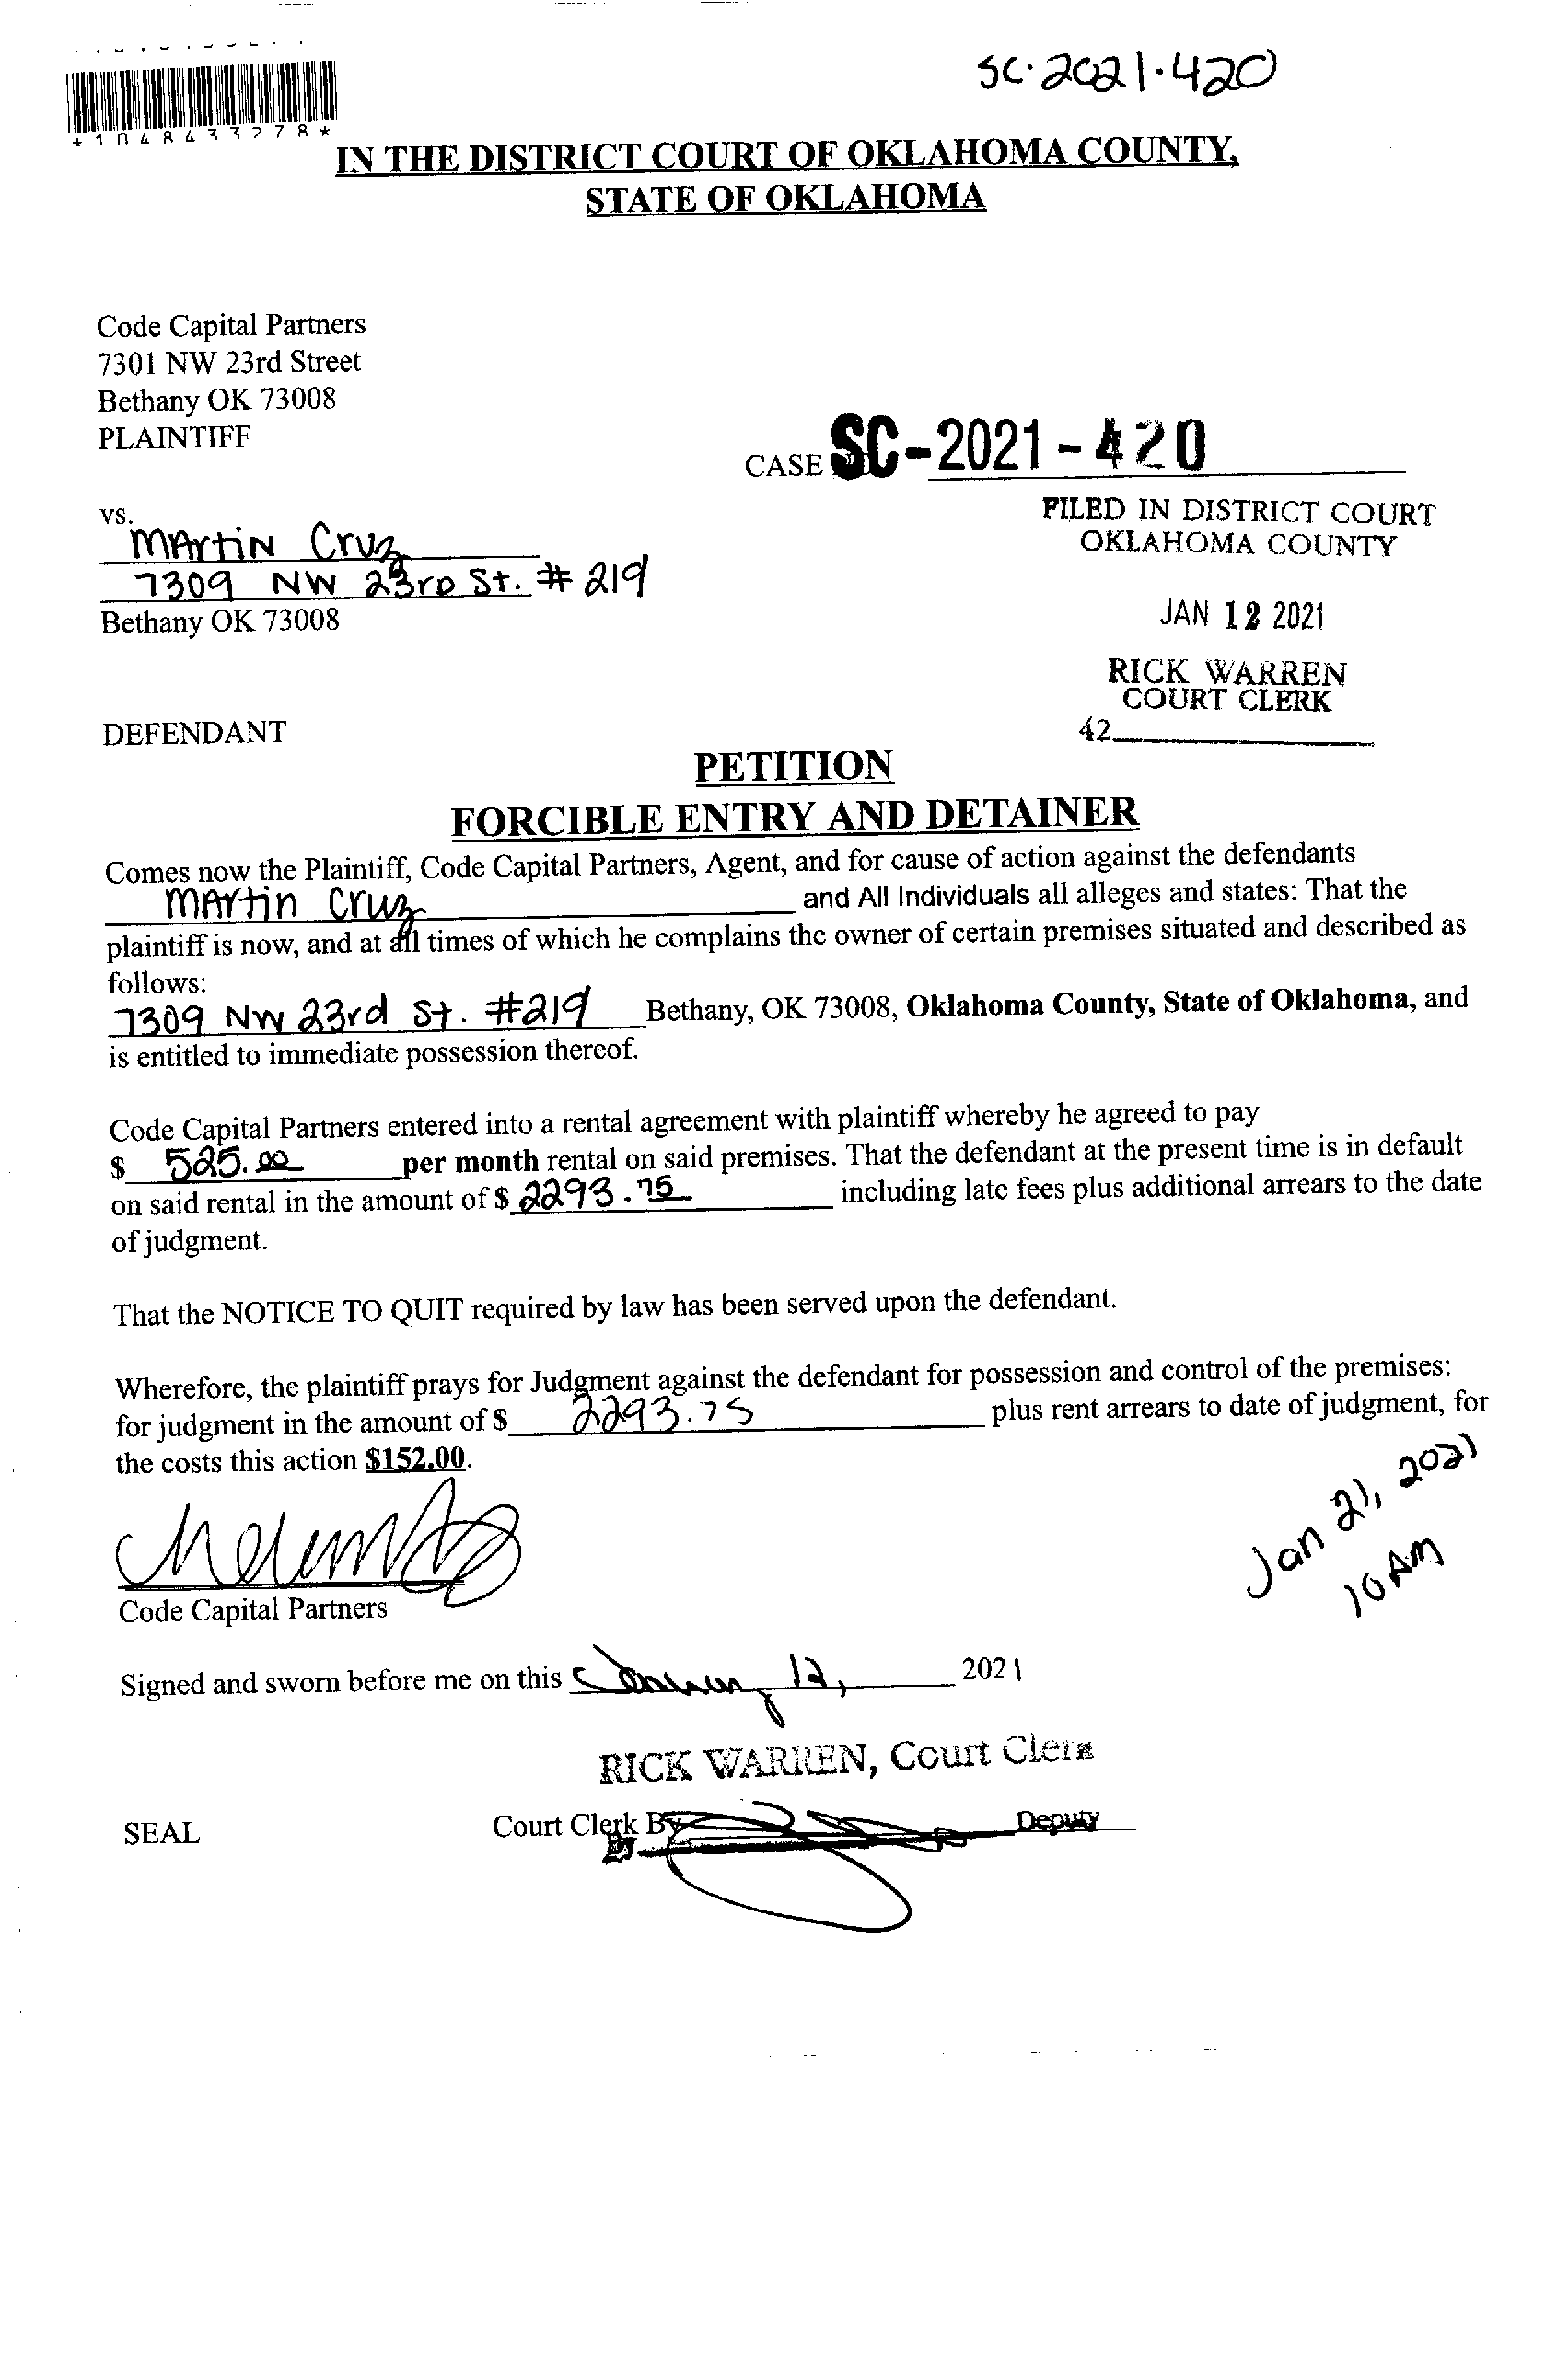 SC·2021·420
IN THE DISTRICT COURT OF OKLAHOMA COUNTY,
STATE OF OKLAHOMA
Code Capital Partners
7301 NW 23rd Street
Bethany OK 73008
PLAINTIFF
CASE SC-2021-420
FILED IN DISTRICT COURT
OKLAHOMA COUNTY
vs.
Martin Cruz
7309 NW 23rd St. #219
Bethany OK 73008
JAN 12 2021
RICK WARREN
COURT CLERK
42
DEFENDANT
PETITION
FORCIBLE ENTRY AND DETAINER
Comes now the Plaintiff, Code Capital Partners, Agent, and for cause of action against the defendants
Martin Cruz and All Individuals all alleges and states: That the
plaintiff is now, and at all times of which he complains the owner of certain premises situated and described as
follows:
7309 NW 23rd St. #219 Bethany, OK 73008, Oklahoma County, State of Oklahoma, and
is entitled to immediate possession thereof.
Code Capital Partners entered into a rental agreement with plaintiff whereby he agreed to pay
$ 525.00 per month rental on said premises. That the defendant at the present time is in default
on said rental in the amount of $ 2293.75 including late fees plus additional arrears to the date
of judgment.
That the NOTICE TO QUIT required by law has been served upon the defendant.
Wherefore, the plaintiff prays for Judgment against the defendant for possession and control of the premises:
for judgment in the amount of $ 2293.75 plus rent arrears to date of judgment, for
the costs this action $152.00.
Jan 21, 2021
10 AM
Code Capital Partners
Signed and sworn before me on this January 12, 2021
RICK WARREN, Court Clerk
SEAL
Court Clerk By
By Deputy